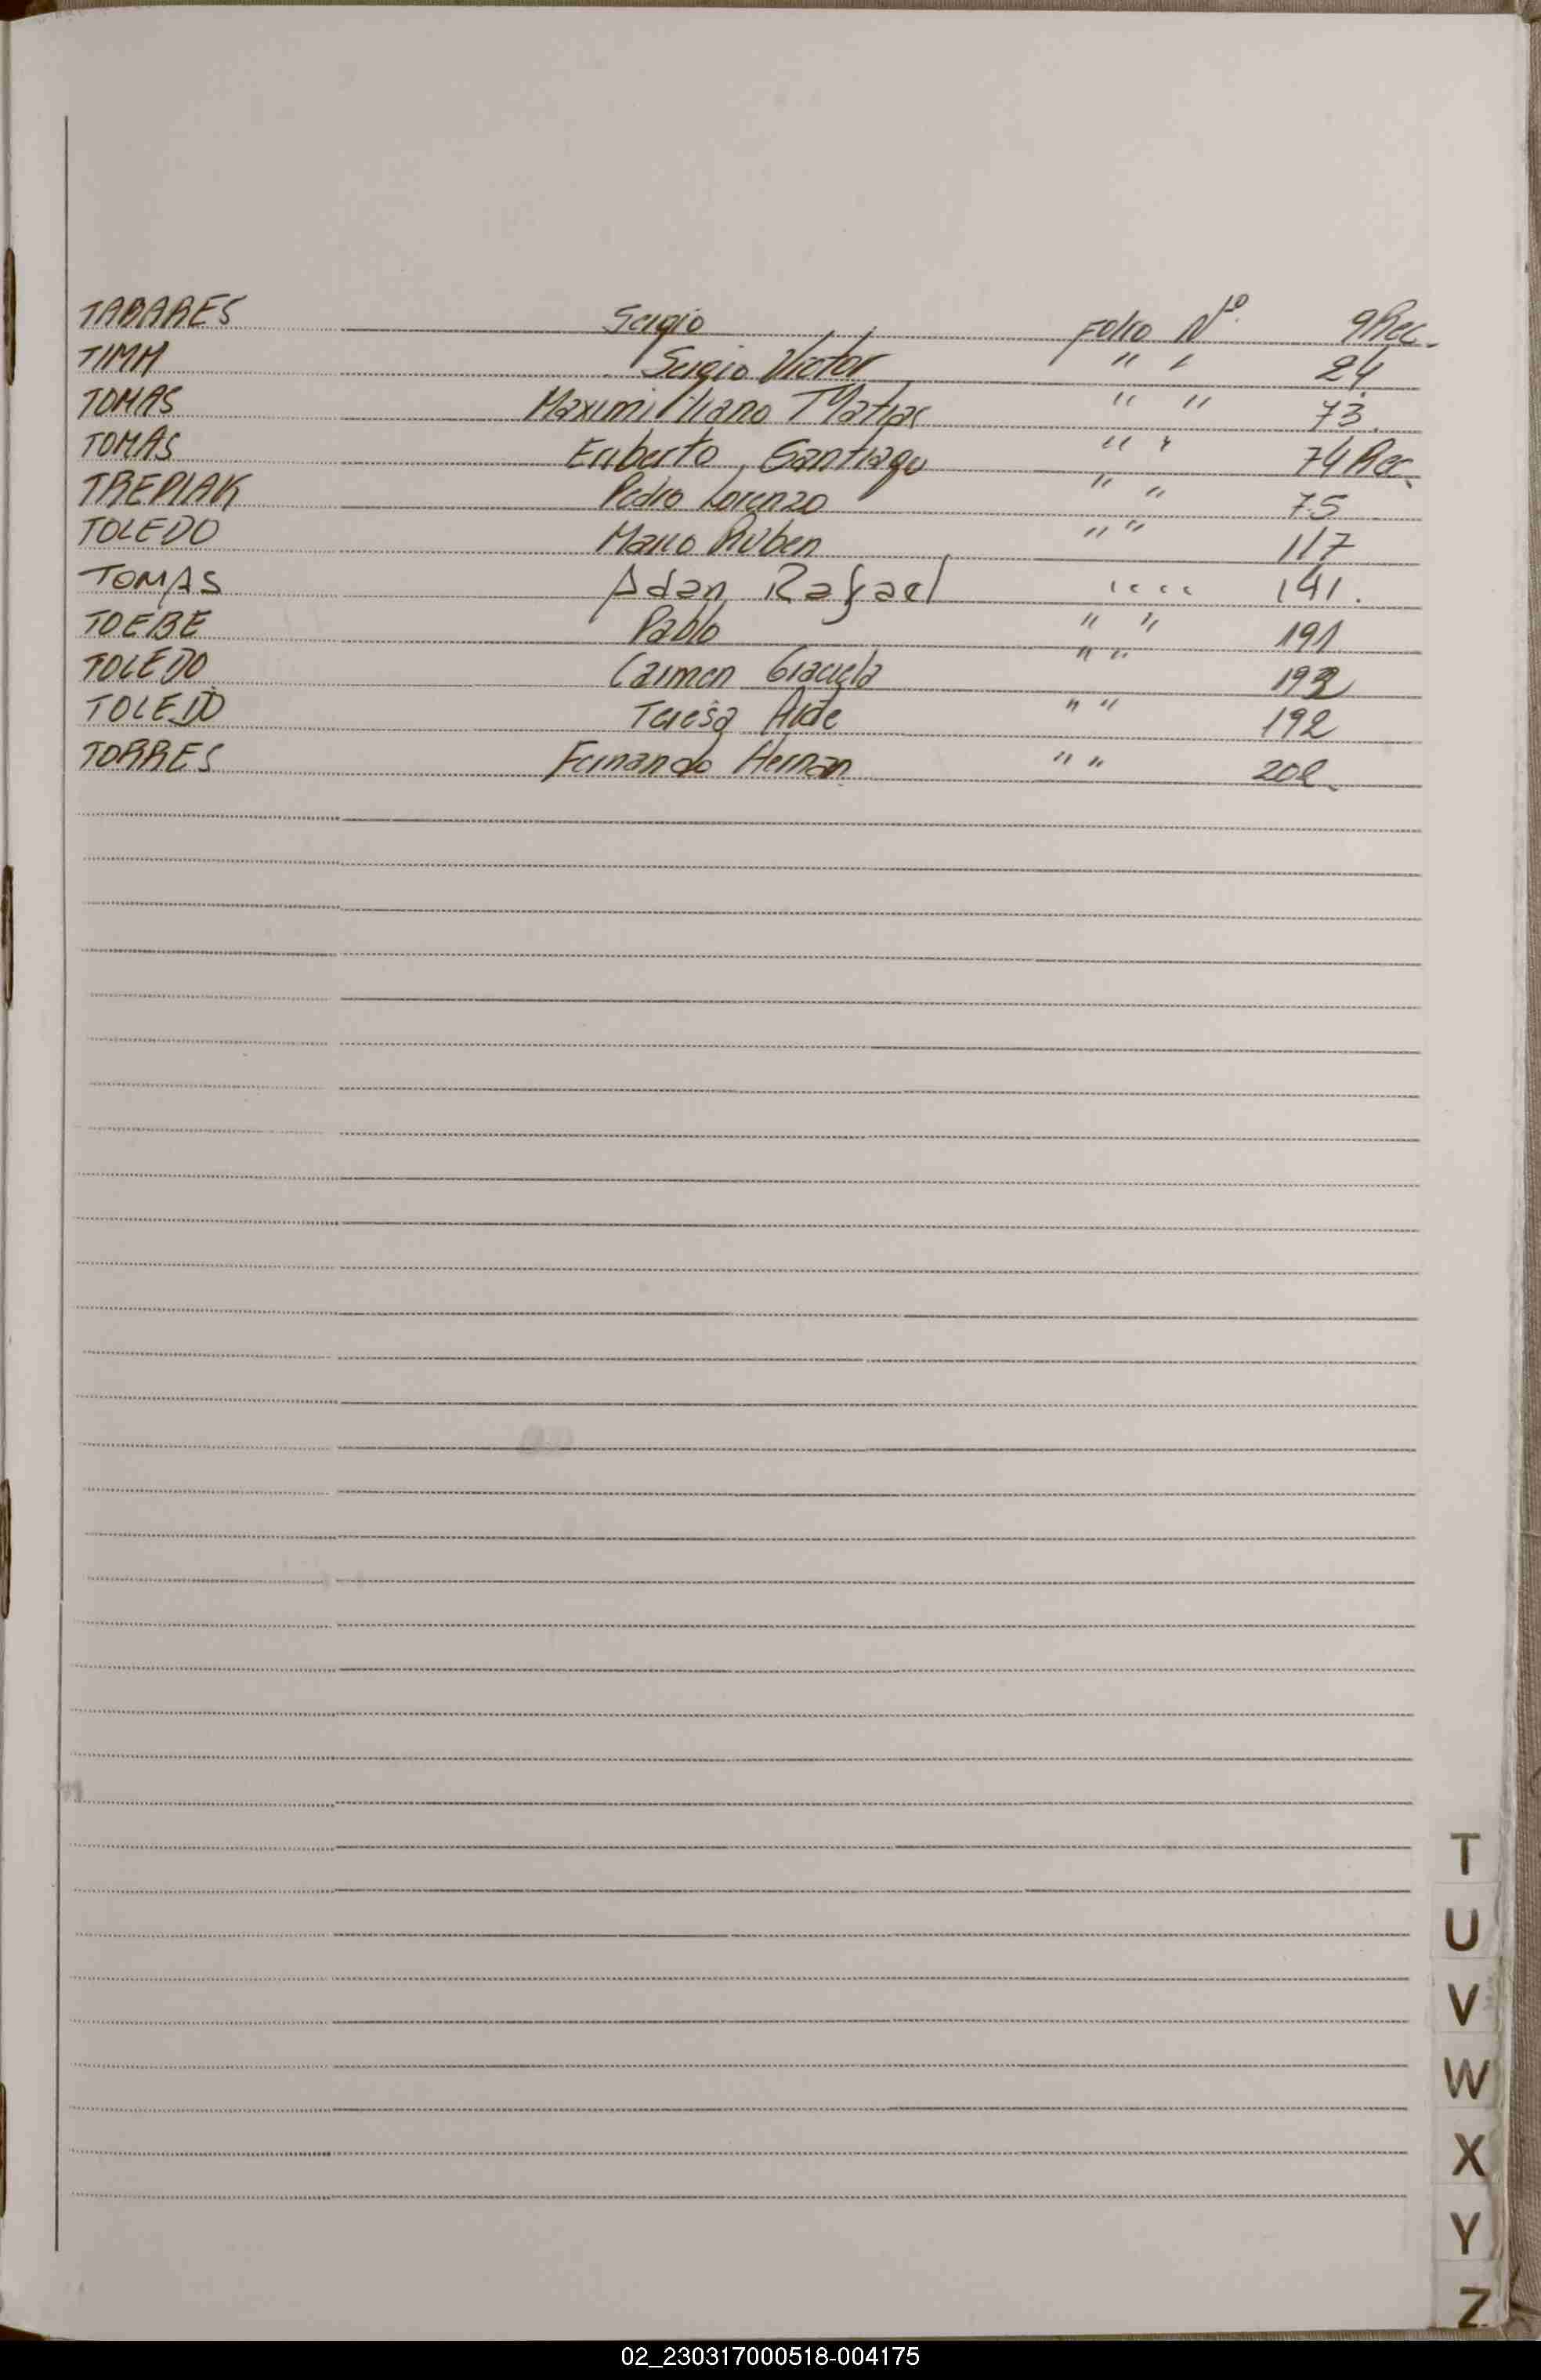 TABARES Sergio Folio Nº 9 Rec.
TIMM Sergio Victor " " 24
TOMAS Maximiliano Matias " " 73.
TOMAS Eriberto Santiago " " 74 Rec.
TREPIAK Pedro Lorenzo " " 75
TOLEDO Mario Ruben " " 117
TOMAS Adan Rafael " " 141.
TOEBE Pablo " " 191
TOLEDO Carmen Graciela " "
TOLEDO Teresa " " 192
TORRES Fernando Hernan " "
T
U
V
W
X
Y
Z
02_230317000518-004175